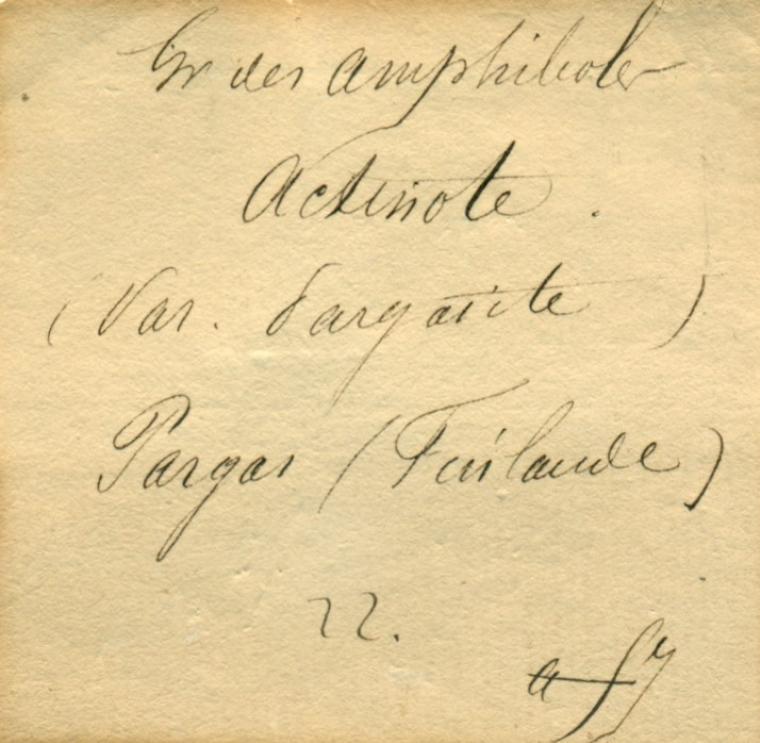 Gr des amphiboles
Actinote.
(Var. Pargasite)
Pargas (Finlande)
22.